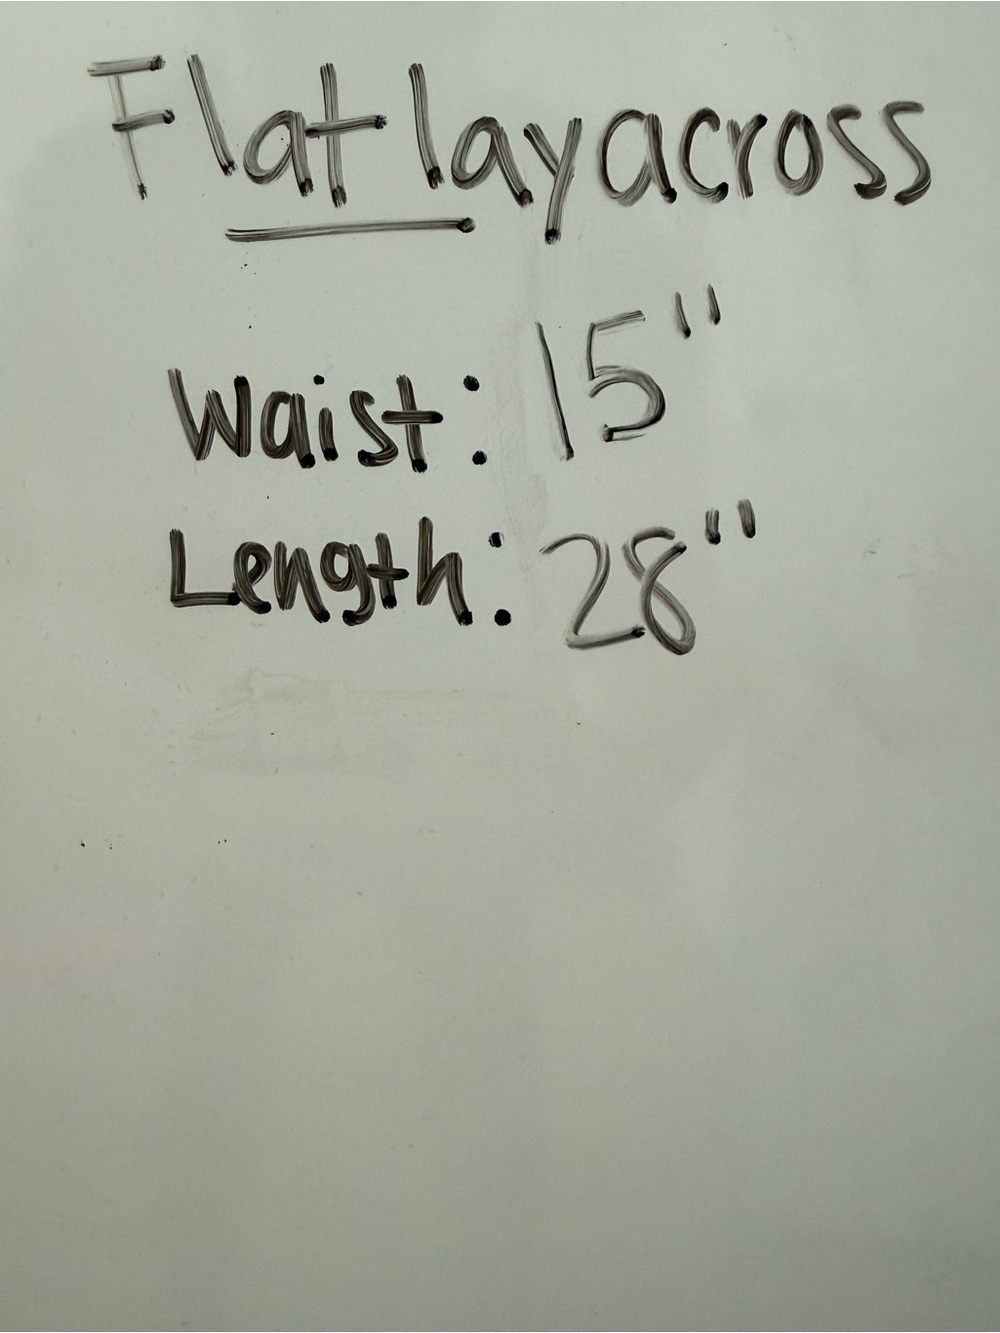 Flat lay across
Waist: 15"
Length: 28"